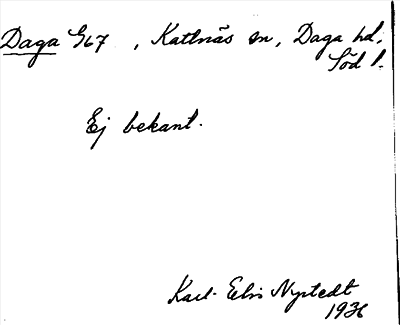 Daga G67, Kattnäs sn, Daga hd,
Söd l.
Ej bekant.
Karl-Elvi Nystedt
1936